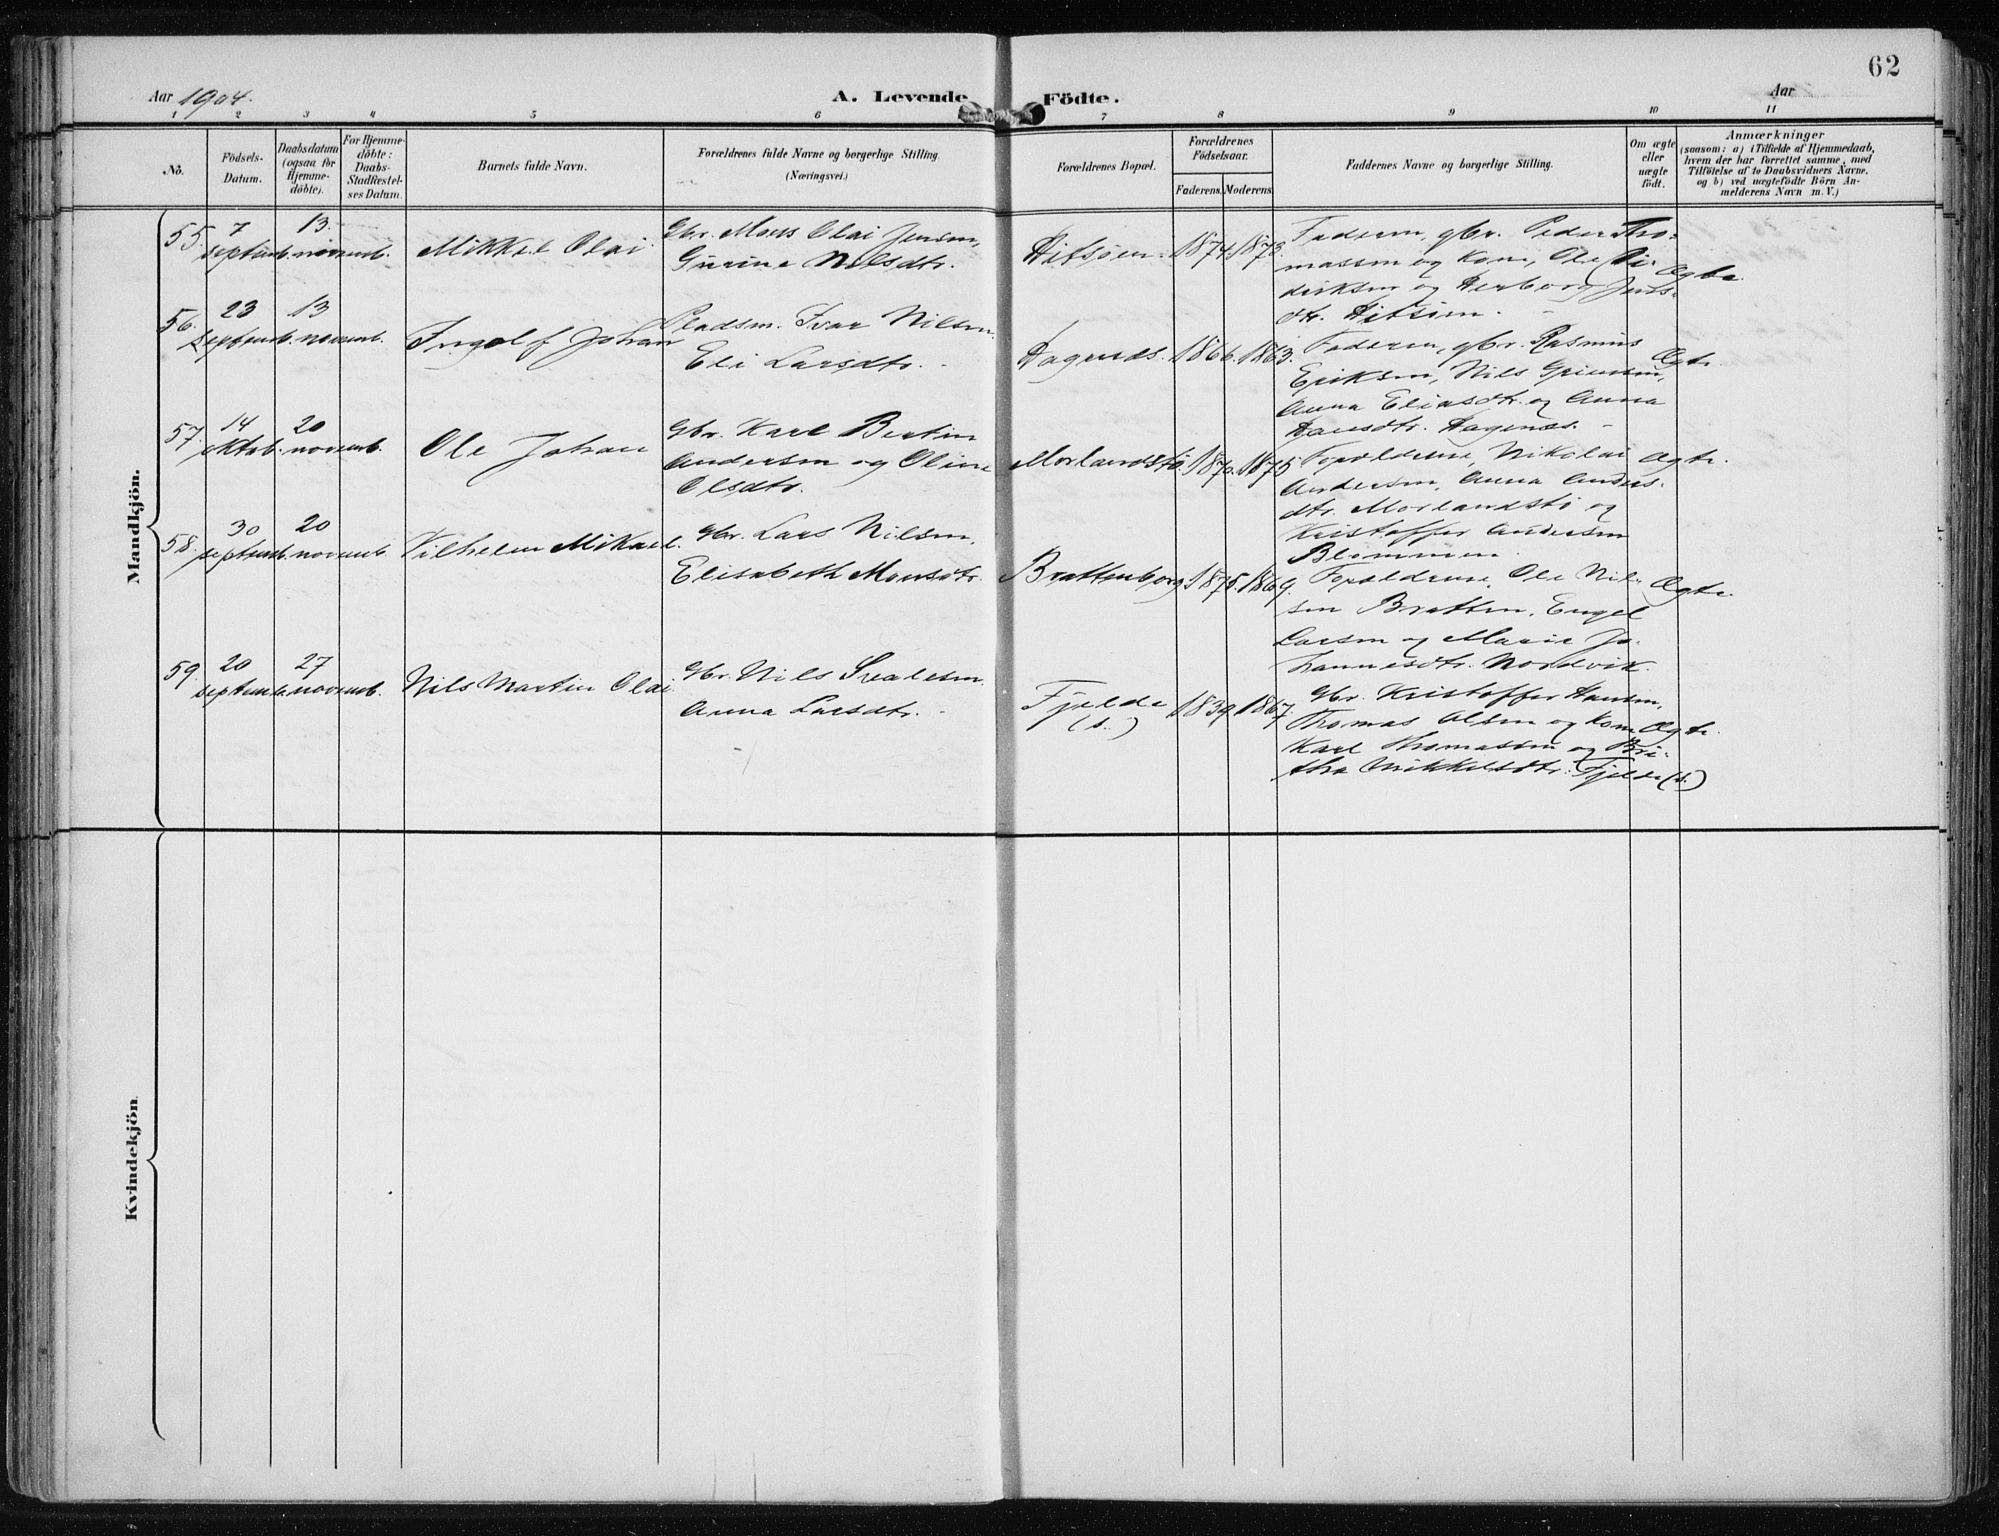 62
Aar 1904.
A. Levende Födte.
Aar
1 2 3 4 5 6 7 8 9 10 11
No.
Födsels-Datum.
Daabsdatum (ogsaa for Hjemme-döbte).
For Hjemme-döbte: Daabs-Stadfæstel-ses Datum.
Barnets fulde Navn.
Forældrenes fulde Navne og borgerlige Stilling.
(Næringsvei.)
Forældrenes Bopæl.
Forældrenes Födselsaar.
Faderens. Moderens
Faddernes Navne og borgerlige Stilling.
Om ægte eller uægte födt.
Anmærkninger
(saasom: a) i Tilfælde af Hjemmedaab,
hvem der har forrettet samme, med
Tilföielse af to Daabsvidners Navne.
og b) ved uægtefödte Börn An-
melderens Navn m. V.)
Mandkjön.
55. 7 septemb. 13. novemb. Mikkel Olai
Gbr. Mons Olai Jensen,
Gurine Nilsdtr.
1874. 1873.
Faderen, gbr. Peder Tho-
massen og Kone, Ole Di-
driksen og Herborg Jens-
dtr.
Ægte.
56. 23 septemb. 13 novemb. Ingolf Johan
Pladsm. Ivar Nilsen
Eli Larsdtr.
Hagenæs. 1866. 1863.
Faderen, gbr. Rasmus
Eriksen, Nils
Anna Eliasdtr. og Anna
Hansdtr. Hagenæs.
Ægte.
57. 14 oktob. 20 novemb. Ole Johan
Gbr. Karl Bertin
Andersen og Oline
Olsdtr.
Morlandstø 1870. 1875
Forældrene, Nikolai
Andersen, Anna Anders-
dtr. Morlandstø og
Kristoffer Andersen
Blommen.
Ægte.
58. 30 septemb. 20 novemb. Vilhelm Mikael.
Gbr. Lars Nilsen,
Elisabeth Monsdtr.
Brattenborg 1875. 1869.
Forældrene, Ole Nil-
sen Bratten, Engel
Larsen og Marie Jo-
hannesdtr. Nordvik.
Ægte.
59. 20 septemb. 27 novemb. Nils Martin Olai
Gbr. Nils
Anna Larsdtr.
Fjelde
(s.)
1839. 1867.
Gbr. Kristoffer Hansen,
Thomas Olsen og Kone
Karl Thomassen og Bri-
tha Mikkelsdtr. Fjelde (s.)
Ægte.
Kvindekjön.